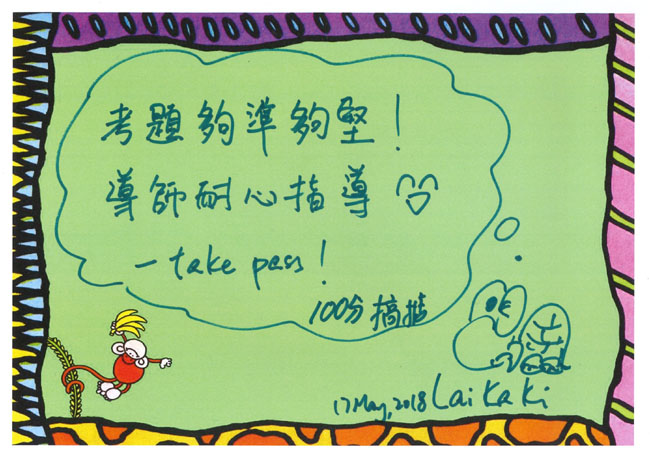 考題夠準夠堅！
導師耐心指導
一take pass！
100分搞掂
17 May, 2018 Lai Ka Ki